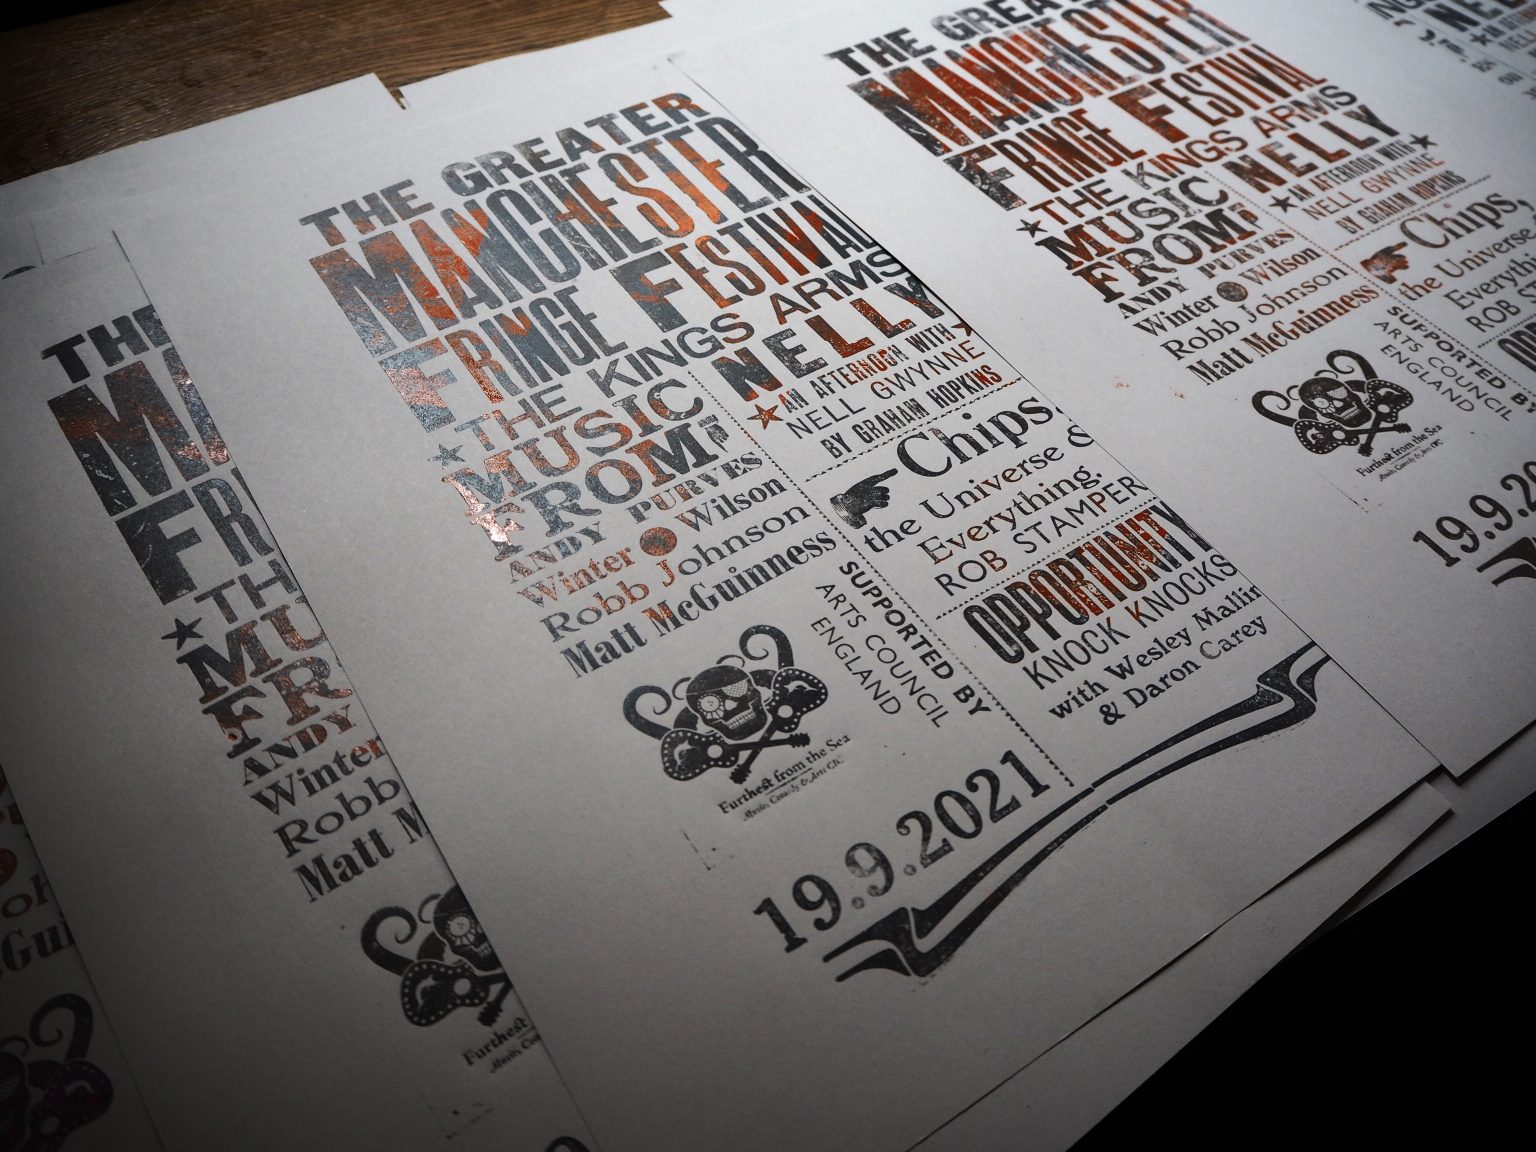 THE GREATER
MANCHESTER
FRINGE FESTIVAL
THE KINGS ARMS
MUSIC
FROM
ANDY PURVES
Winter Wilson
Robb Johnson
Matt McGuinness
NELLY
AN AFTERNOON WITH
NELL GWYNNE
BY GRAHAM HOPKINS
Chips,
the Universe &
Everything.
ROB STAMPER
OPPORTUNITY
KNOCK KNOCKS
with Wesley Mallin
& Daron Carey
SUPPORTED BY
ARTS COUNCIL
ENGLAND
Furthest from the Sea
Music, Comedy & Arts CIC
19.9.2021
THE GREAT
MANCHESTER
FRINGE FESTIVAL
THE KINGS ARMS
MUSIC
FROM
ANDY PURVES
Winter Wilson
Robb Johnson
Matt McGuinness
NELLY
AN AFTERNOON WITH
NELL GWYNNE
BY GRAHAM HOPKINS
Chips,
the Universe
Everythi
ROB ST
OPP
SUPPORTED BY
ARTS COUNCIL
ENGLAND
Furthest from the Sea
Music, Comedy & Arts CIC
19.9.20
THE
MA
FR
TH
MU
FR
ANDY
Winter
Robb
Matt M
Furthest
Music, Com